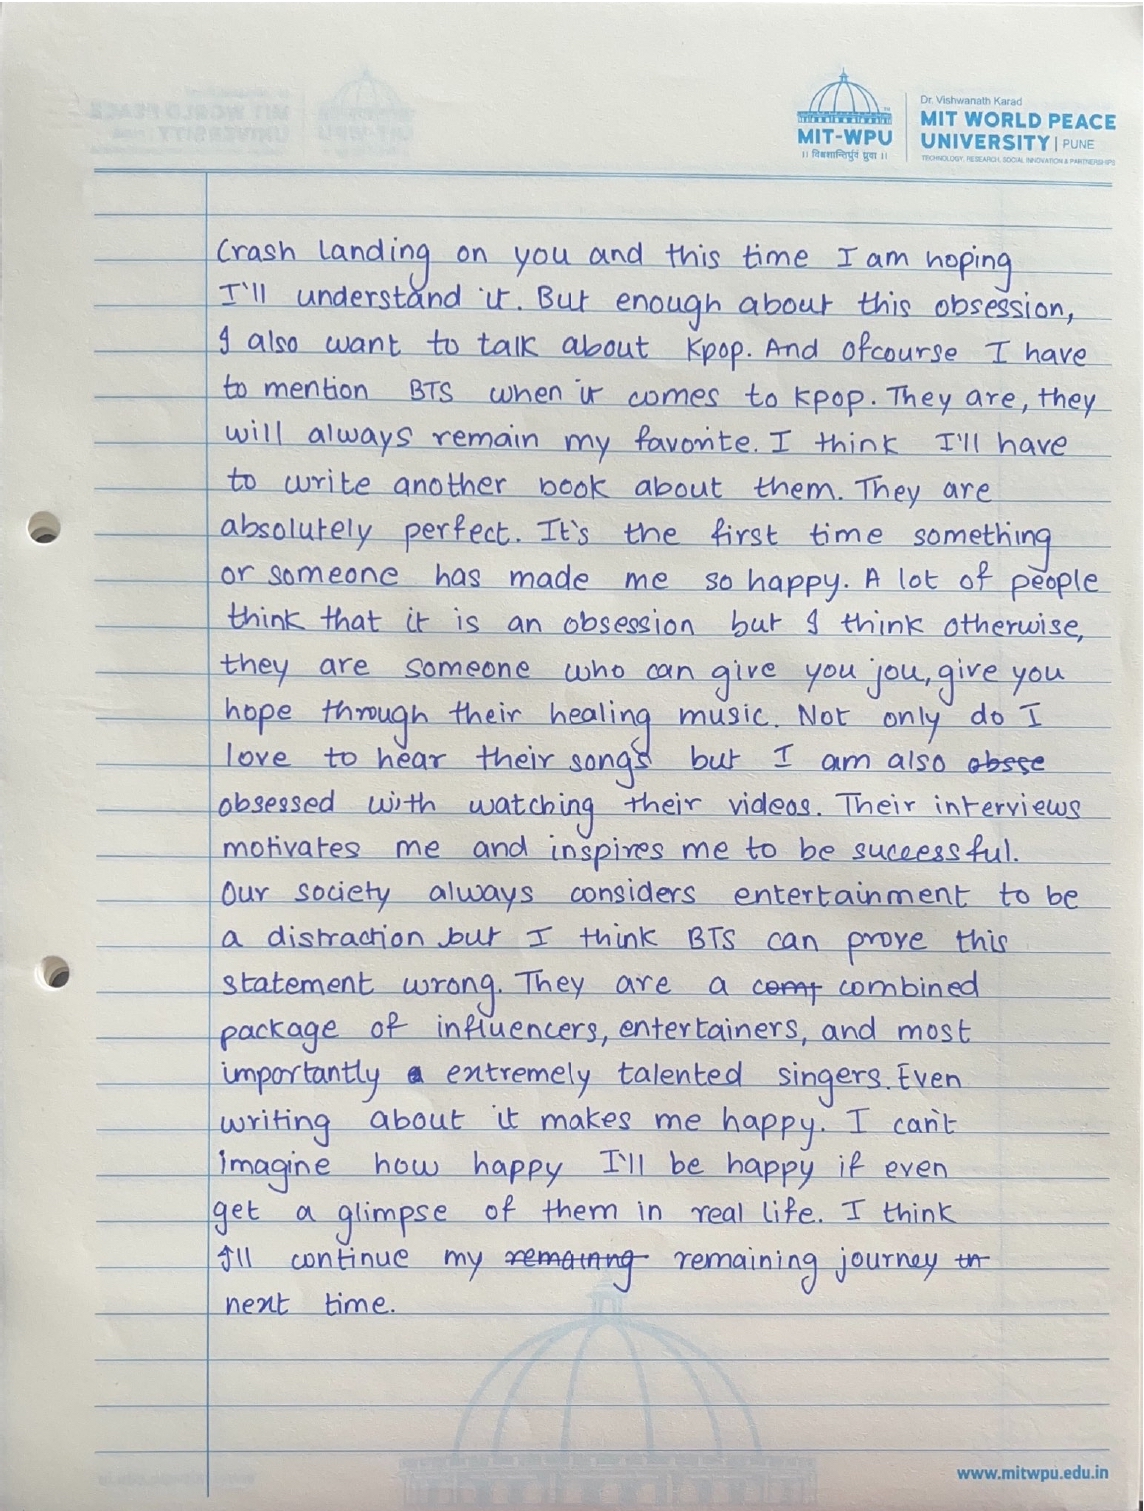 Dr. Vishwanath Karad
MIT WORLD PEACE
UNIVERSITY | PUNE
TECHNOLOGY, RESEARCH, SOCIAL INNOVATION & PARTNERSHIPS
MIT-WPU
॥ विश्वशान्तिर्ध्रुवं ध्रुवा ॥
Crash landing on you and this time I am hoping
I'll understand it. But enough about this obsession,
I also want to talk about Kpop. And ofcourse I have
to mention BTS when it comes to kpop. They are, they
will always remain my favorite. I think I'll have
to write another book about them. They are
absolutely perfect. It's the first time something
or someone has made me so happy. A lot of people
think that it is an obsession but I think otherwise,
they are someone who can give you jou, give you
hope through their healing music. Not only do I
love to hear their songs but I am also obsse
obsessed with watching their videos. Their interviews
motivates me and inspires me to be successful.
Our society always considers entertainment to be
a distraction but I think BTS can prove this
statement wrong. They are a comt combined
package of influencers, entertainers, and most
importantly a extremely talented singers. Even
writing about it makes me happy. I can't
imagine how happy I'll be happy if even
get a glimpse of them in real life. I think
I'll continue my remainng remaining journey in
next time.
www.mitwpu.edu.in